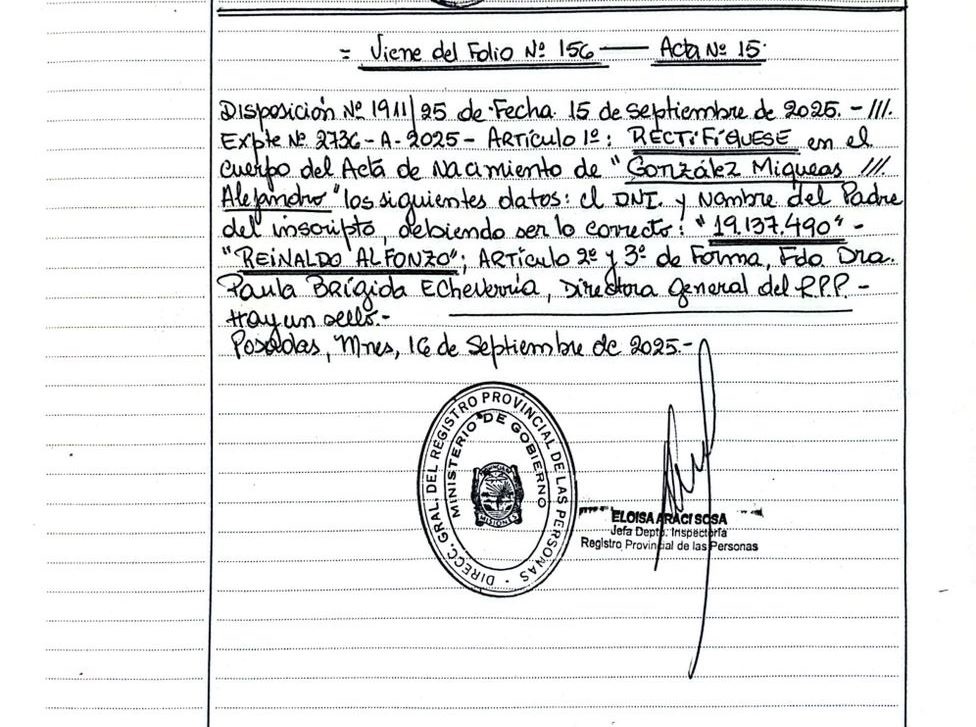 = Viene del Folio Nº 156 — Acta Nº 15.
Disposición Nº 1911/25 de Fecha 15 de Septiembre de 2025. - ///.
Expte Nº 2736 - A - 2025 - Artículo 1º: RECTIFÍQUESE en el
cuerpo del Acta de Nacimiento de "González Miqueas ///.
Alejandro" los siguientes datos: el DNI. y Nombre del Padre
del inscripto, debiendo ser lo correcto: "19.137.490" -
"REINALDO ALFONZO"; Artículo 2º y 3º de Forma, Fdo Dra.
Paula Brígida Echeverría, Directora General del R.P.P. -
Hay un sello.-
Posadas, Mnes, 16 de Septiembre de 2025.-
DIRECC. GRAL. DEL REGISTRO PROVINCIAL DE LAS PERSONAS -
MINISTERIO DE GOBIERNO
MISIONES
ELOISA ARACI SOSA
Jefa Depto. Inspectoría
Registro Provincial de las Personas